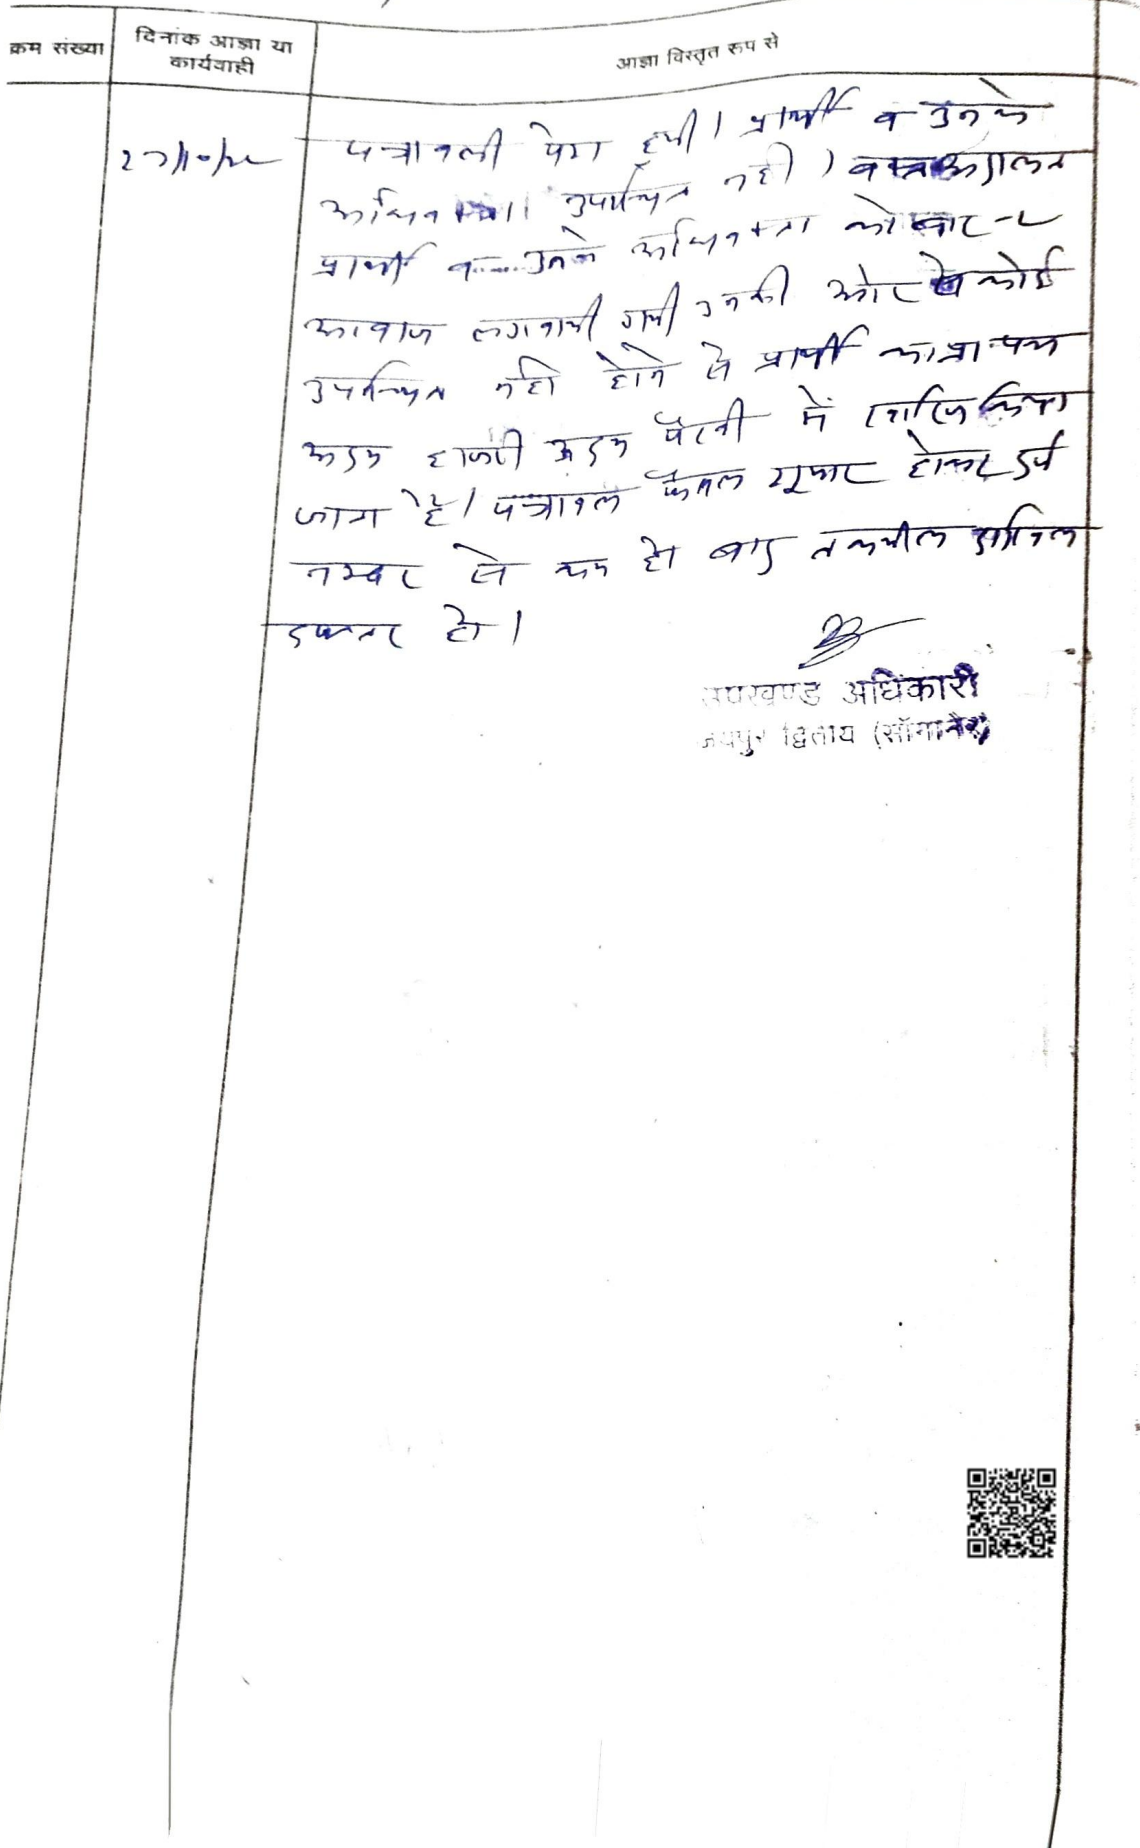 क्रम संख्या
दिनांक आज्ञा या
कार्यवाही
आज्ञा विस्तृत रूप से
पत्रावली पेश हुयी। प्रार्थी व उनके
अधिवक्ता उपस्थित नही।
प्रार्थी व उनके अधिवक्ता को बार-२
आवाज लगवायी गयी उनकी ओर से कोई
उपस्थित नही होने से प्रार्थी का प्रा० पत्र
अदम हाजरी अदम पैरवी में खारिज किया
जाता है। पत्रावली फैसल शुमार होकर दर्ज
नम्बर से कम हो बाद तकमील दाखिल
दफ्तर हो।
उपखण्ड अधिकारी
जयपुर द्वितीय (सॉगानेर)